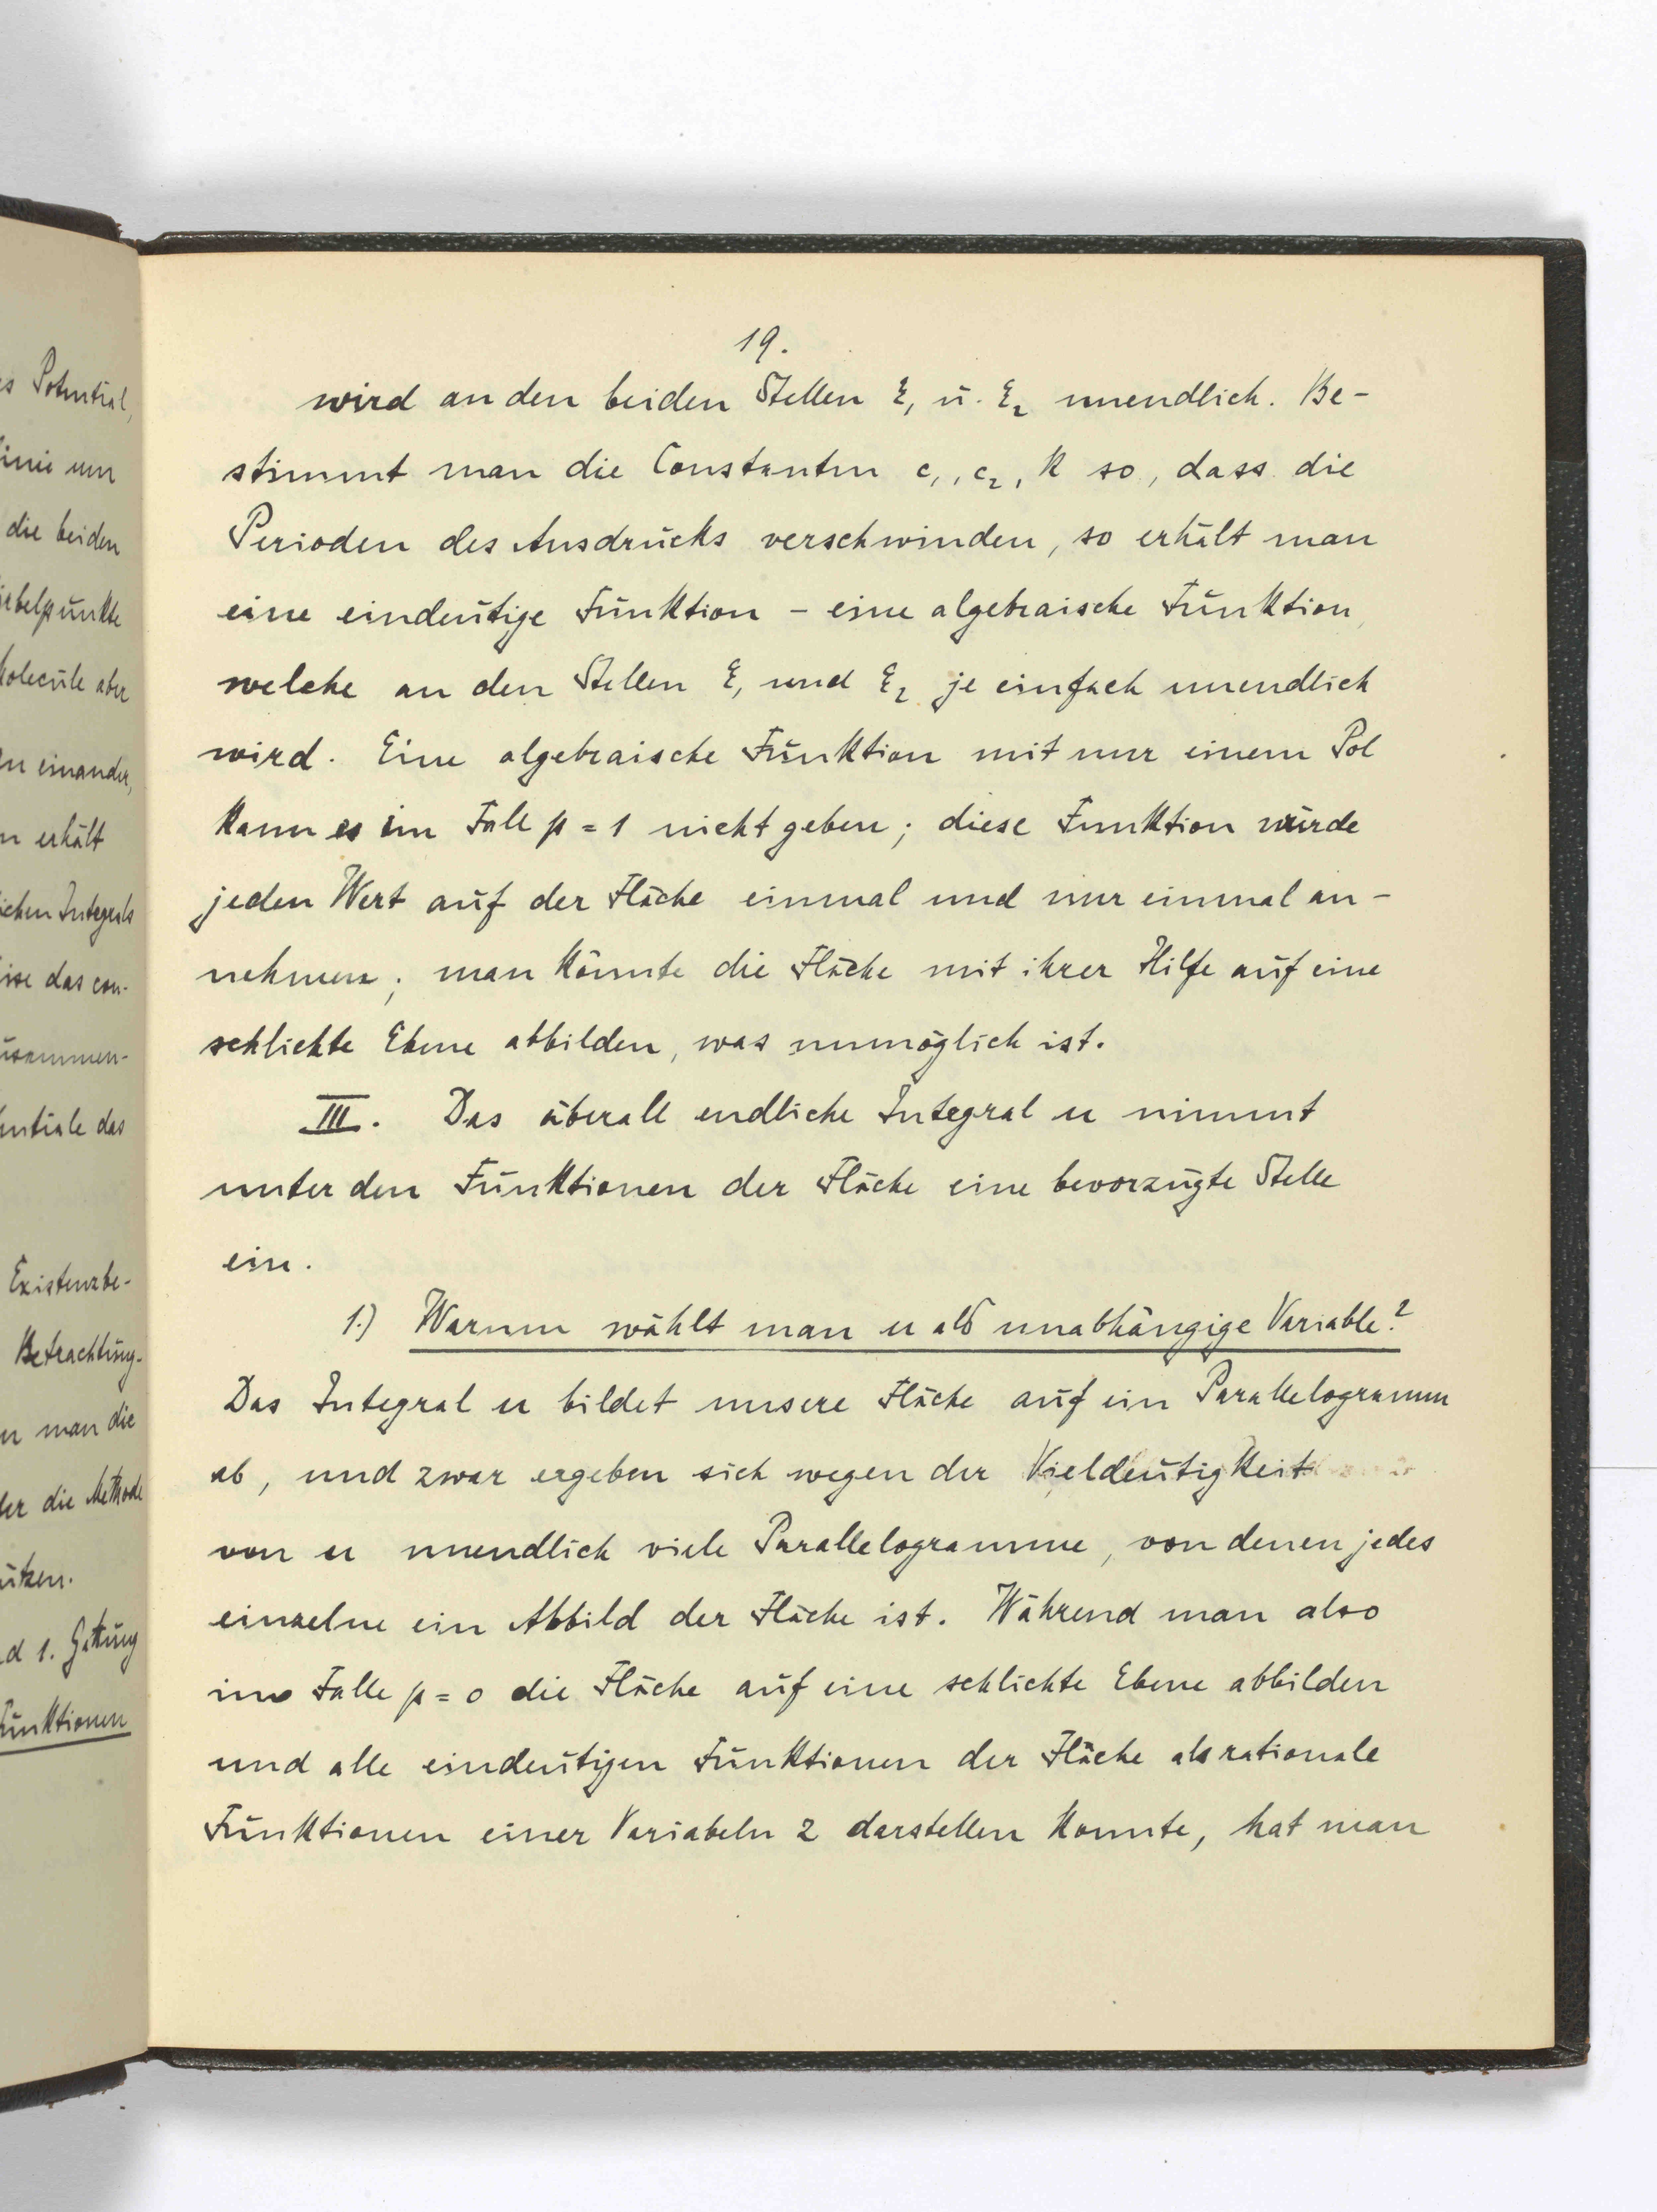 19.
wird an den beiden Stellen ξ₁ u. ξ₂ unendlich. Be-
stimmt man die Constanten c₁, c₂, k so, dass die
Perioden des Ausdrucks verschwinden, so erhält man
eine eindeutige Funktion – eine algebraische Funktion,
welche an den Stellen ξ₁ und ξ₂ je einfach unendlich
wird. Eine algebraische Funktion mit nur einem Pol
kann es im Fall p = 1 nicht geben; diese Funktion würde
jeden Wert auf der Fläche einmal und nur einmal an-
nehmen; man könnte die Fläche mit ihrer Hilfe auf eine
schlichte Ebene abbilden, was unmöglich ist.
III. Das überall endliche Integral u nimmt
unter den Funktionen der Fläche eine bevorzugte Stelle
ein.
1.) Warum wählt man u als unabhängige Variable?
Das Integral u bildet unsere Fläche auf ein Parallelogramm
ab, und zwar ergeben sich wegen der Vieldeutigkeit
von u unendlich viele Parallelogramme, von denen jedes
einzelne ein Abbild der Fläche ist. Während man also
im Falle p = 0 die Fläche auf eine schlichte Ebene abbilden
und alle eindeutigen Funktionen der Fläche als rationale
Funktionen einer Variabeln z darstellen konnte, hat man
es Potential,
linie um
die beiden
Wirbelpunkte
Molecüle aber
einander,
erhält
Integrals
das con-
zusammen-
das
Existenzbe-
Betrachtung-
man die
die Methode
1. Gattung
Funktionen